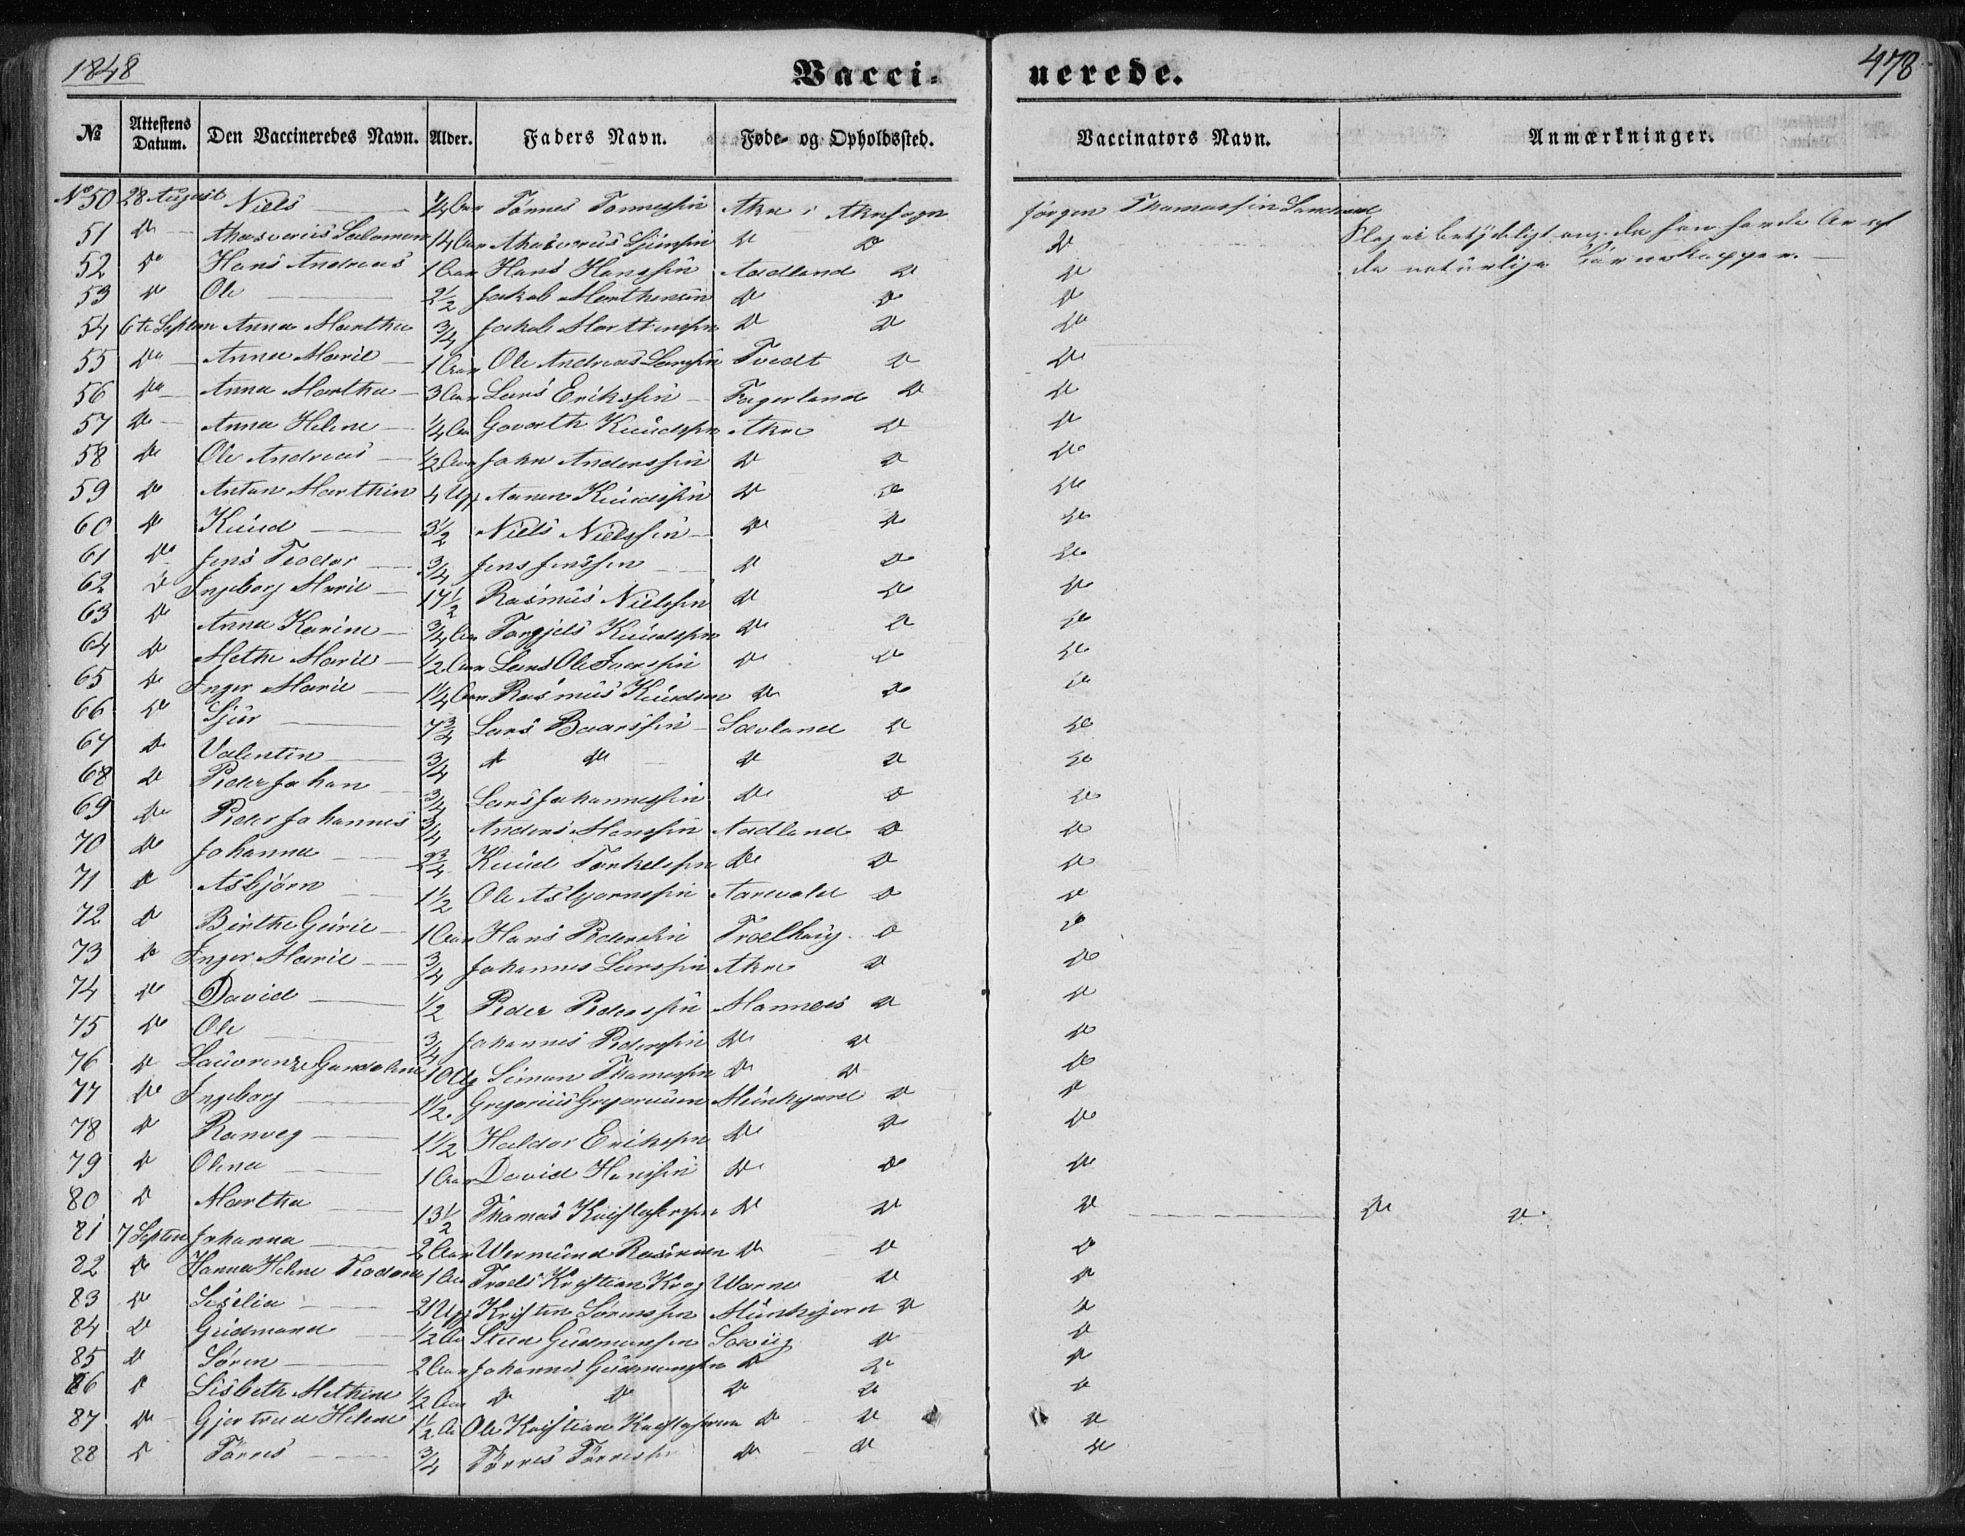 1848
Vacci-
nerede.
478
№ Attestens Datum. Den Vaccineredes Navn. Alder. Faders Navn. Føde- og Opholdssted. Vaccinators Navn. Anmærkninger.
No 50 28 August Niels 1/4 Aar Tønnes Tønnessen Akre i Akresogn Jørgen Thomassen
51 Do Ahasverus Salomon 1/4 Aar Ahasverus Do Do Do
52 Do Hans Andreas 1 Aar Hans Hanssen Aadland Do Do
53 Do Ole 2 1/2 Jakob Marthinsen Do Do Do
54 6te Septem Anna Martha 3/4 Jakob Marthinssen Do Do Do
55 Do Anna Marie 1 Aar Ole Andreas Larssen Tvedt Do Do
56 Do Anna Martha 3 Aar Lars Erikssen Fagerland Do Do
57 Do Anna Helene 1/4 Aar Govarth Knudssen Akre Do Do
58 Do Ole Andreas 1/2 Aar John Anderssen Do Do Do
59 Do Anton Marthin 4 Ug Aanen Knudssen Do Do Do
60 Do Knud 3 1/2 Niels Nielssen Do Do Do
61 Do Jens Teodor 3/4 Jens Jenssen Do Do Do
62 Do Ingeborg Marie 17 1/2 Rasmus Nielssen Do Do Do
63 Do Anna Karine 3/4 Aar Torgjels Knudssen Do Do Do
64 Do Methe Marie 1/2 Aar Lars Ole Iverssen Do Do Do
65 Do Inger Marie 1 1/4 Aar Rasmus Knudsen Do Do Do
66 Do Sjur 7 3/4 Lars Baarssen Sævland Do Do
67 Do Valentin 3/4 Do Do Do Do Do
68 Do Peder Johan 3/4 Lars Johannessen Do Do Do
69 Do Peder Johannes 3/4 Anders Hanssen Aadland Do Do
70 Do Johanna 2 3/4 Knud Torkelssen Do Do Do
71 Do Asbjørn 1 1/2 Ole Asbjørnssen Aarevold Do Do
72 Do Birthe Gurie 1 Aar Hans Pederssen Do Do
73 Do Inger Marie 3/4 Johannes Larssen Akre Do Do
74 Do David 1/2 Peder Pederssen Mannes Do Do
75 Do Ole 3/4 Johannes Pederssen Do Do Do
76 Do Laurenze Gundeline 10 Ug Simon Thomassen Do Do Do
77 Do Ingeborg 1 1/2 Gregorius Gregoriusen Munkejord Do Do
78 Do Ranveg 1 1/2 Haldor Erikssen Do Do Do
79 Do Olina 1 Aar David Hanssen Do Do Do
80 Do Martha 13 1/2 Thomas Kristofferssen Do Do Do Do Do
81 7 Septem Johanna 2 Aar Wermund Rasmusen Do Do Do
82 Do Hanna Helene Teodora 1 Aar Troels Kristian Krog Warne Do Do
83 Do Siselia 21 Ug Kristen Sørenssen Munkejord Do Do
84 Do Gudmund 1/2 Aar Steen Gudmunssen Sævig Do Do
85 Do Søren 2 Aar Johannes Gudmunssen Do Do Do
86 Do Lisbeth Methine 1/2 Aar Do Do Do Do Do
87 Do Gjertrud Helene 1 1/2 Aar Ole Kristian Kristoffersen Do Do Do
88 Do Tørres 3/4 Tørres Tørressen Do Do Do